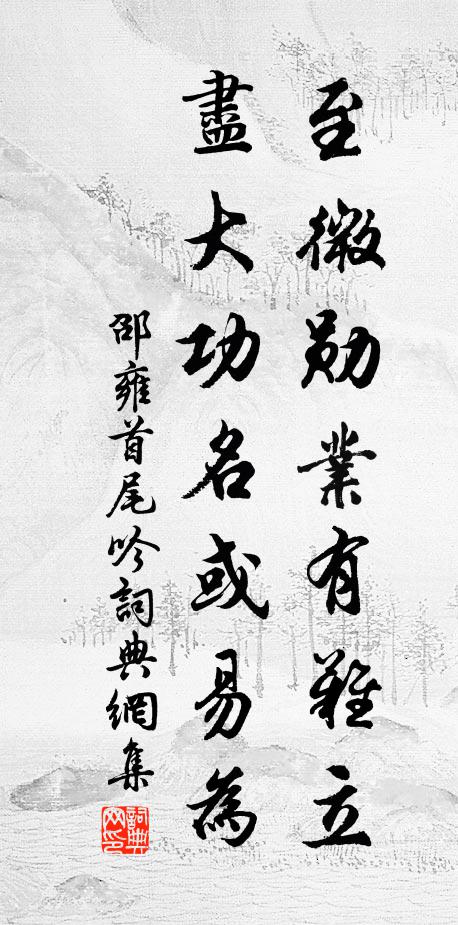 至微勛業有難立
盡大功名或易為
邵雍首尾吟詞典網集
詞典網印